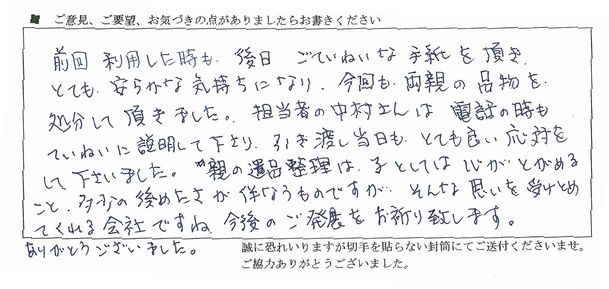 ■ ご意見、ご要望、お気づきの点がありましたらお書きください
前回 利用した時も、後日 ごていねいな 手紙を頂き、
とても 安らかな気持ちになり、今回も、両親の品物を、
処分して頂きました。担当者の中村さんは 電話の時も
ていねいに説明して下さり、引き渡し当日も、とても良い応対を
して下さいました。"親の遺品整理は、子としては心がとがめる
こと、多少の後めたさが伴なうものですが、そんな思いを受けとめ
てくれる会社ですね。今後のご発展をお祈り致します。
ありがとうございました。
誠に恐れいりますが切手を貼らない封筒にてご送付くださいませ。
ご協力ありがとうございました。